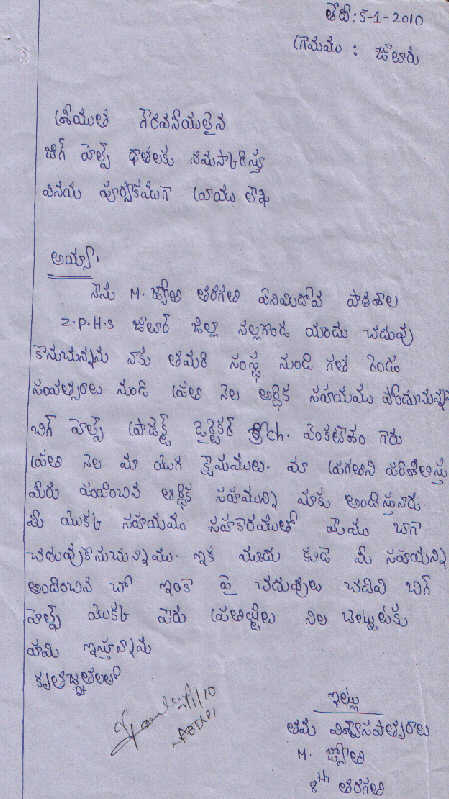 తేది: 5-1-2010
గ్రామము : జూలూరు
శ్రీయుత గౌరవనీయులైన
బిగ్ హెల్ప్ దాతలకు నమస్కరిస్తూ
వినయ పూర్వకముగా వ్రాయు లేఖ
అయ్యా.
నేను M. జ్యోతి తరగతి ఎనిమిదోవ పాఠశాల
Z.P.H.S జూలూర్ జిల్లా నల్లగొండ యందు చదువు
కొనుచున్నను నాకు తమరి సంస్థ నుండి గత రెండు
సంవత్సరాలు నుండి ప్రతి నెల ఆర్థిక సహాయము పొందుచున్న
బిగ్ హెల్ప్ ప్రాజెక్ట్ డైరెక్టర్ శ్రీ ch. వెంకటేశం గారు
ప్రతి నెల మా యోగ క్షేమములు. మా ప్రగతిని పరిశీలిస్తు
మీరు పంపించిన ఆర్థిక సహాయాన్ని మాకు అందిస్తునారు
మీ యొక్క సహాయము సహకారములతో మేము బాగా
చదువుకొనుచున్నాము. ఇక ముందు కూడ మీ సహాయాన్ని
అందించిన చో ఇంకా పై చదువులు చదివి బిగ్
హెల్ప్ యొక్క పేరు ప్రతిష్టలు నిల బెట్టుటకు
హామి ఇస్తున్నాము
కృతజ్ఞతలతో
ఇట్లు
తమ విశ్వాసపాత్రురాలు
M. జ్యోతి
8th తరగతి